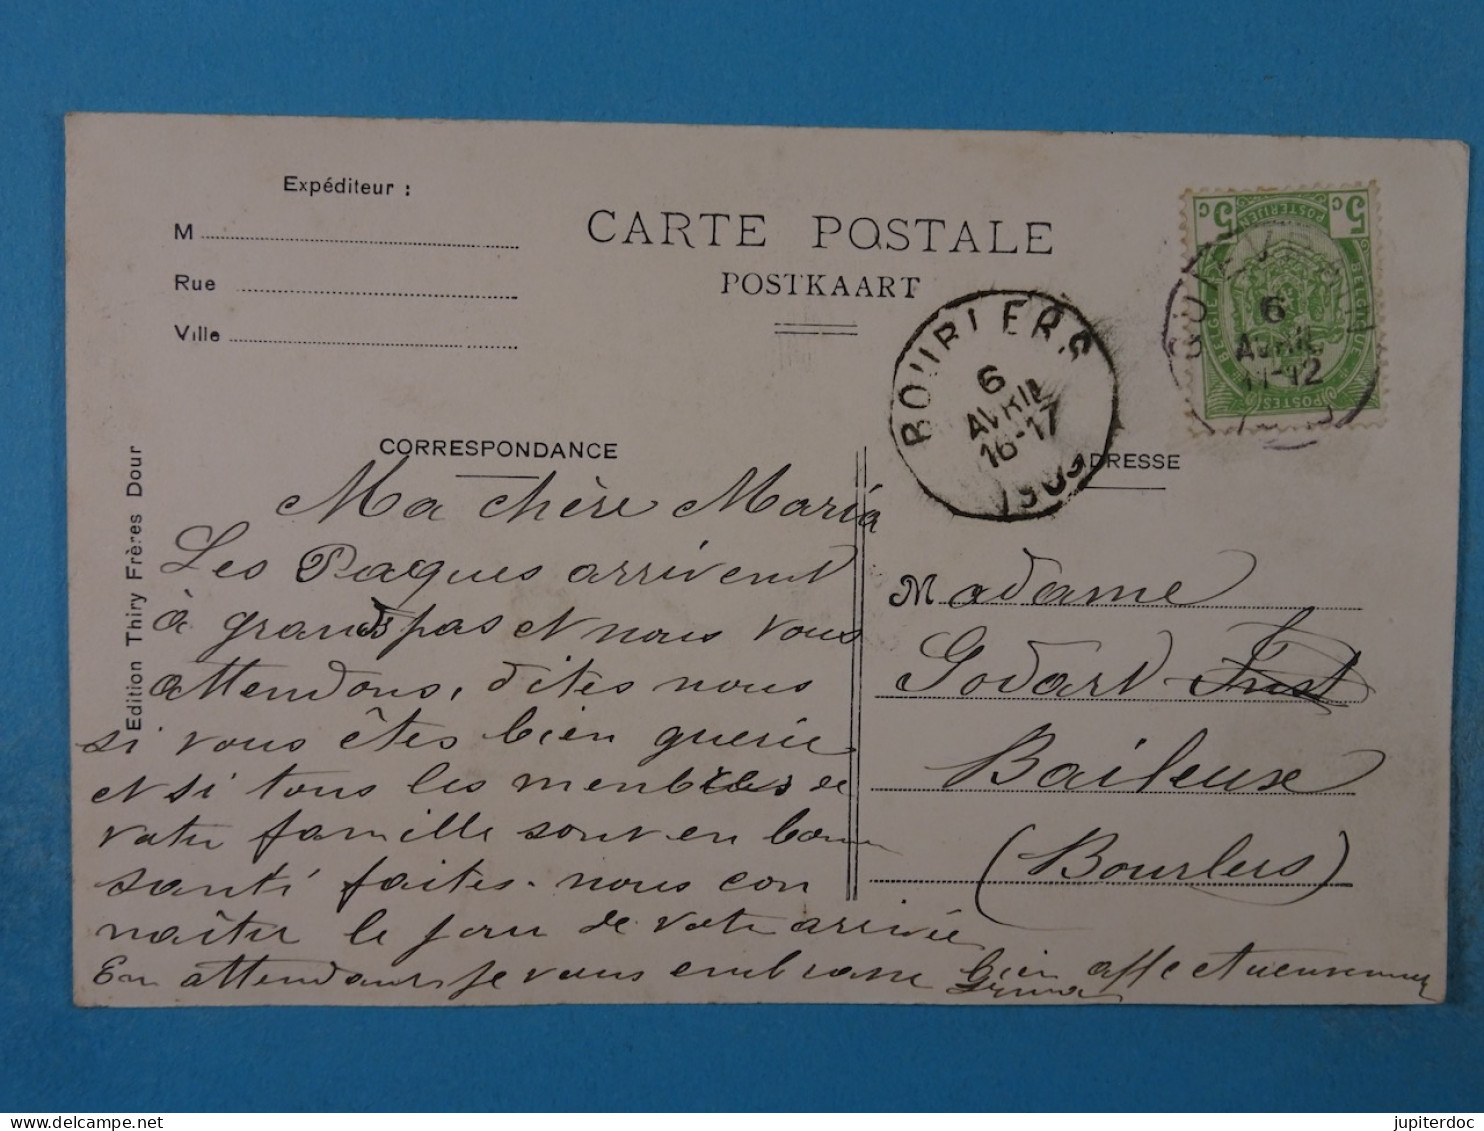 Expéditeur :
M
Rue
Ville
CARTE POSTALE
POSTKAART
5c 5c
POSTERIJEN
BELGIQUE
POSTES
6
AVRIL
11-12
BOURLERS
6
AVRIL
16-17
190
CORRESPONDANCE
ADRESSE
Edition Thiry Frères Dour
Ma chère Maria
Les Paques arrivent
à grands pas et nous vous
attendons, dites nous
si vous êtes bien guerie
et si tous les menbres de
votre famille sont en bonne
santé faites-nous con
naître le jour de votre arrivée
En attendant je vous embrasse bien affectueusement
Madame
Godart
Baileux
(Bourlers)
jupiterdoc